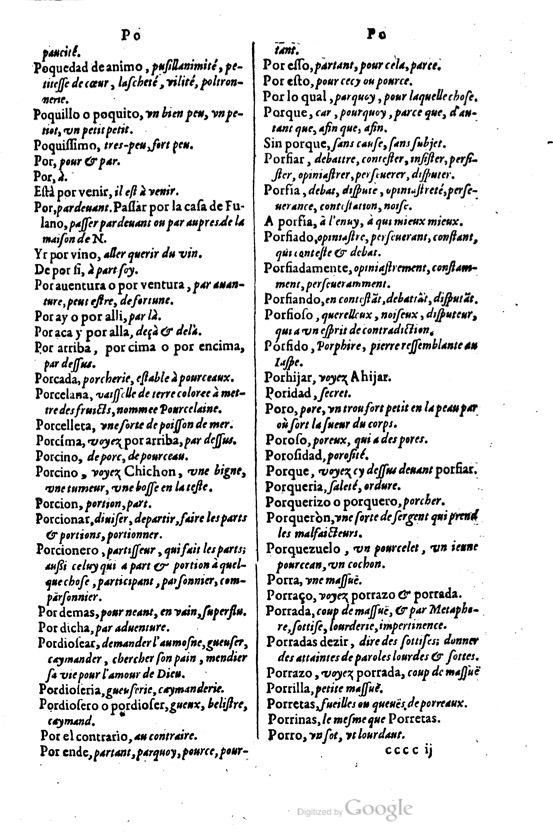 Po
paucité.
Poquedad de animo, puſillanimité, pe-
titeſſe de cœur, laſcheté, vilité, poltron-
nerie.
Poquillo o poquito, vn bien peu, vn pe-
tiot, vn petit petit.
Poquiſſimo, tres-peu, fort peu.
Por, pour & par.
Por, à.
Eſtà por venir, il eſt à venir.
Por, pardeuant. Paſſar por la caſa de Fu-
lano, paſſer pardeuant ou par aupres de la
maiſon de N.
Yr por vino, aller querir du vin.
De por ſi, à part ſoy.
Por auentura o por ventura, par auan-
ture, peut eſtre, de fortune.
Por ay o por alli, par là.
Por aca y por alla, deçà & delà.
Por arriba, por cima o por encima,
par deſſus.
Porcada, porcherie, eſtable à pourceaux.
Porcelana, vaiſſelle de terre coloree à met-
tre des fruicts, nommee Pourcelaine.
Porcelleta, vne ſorte de poiſſon de mer.
Porcíma, voyez por arriba, par deſſus.
Porcino, de porc, de pourceau.
Porcino, voyez Chichon, vne bigne,
vne tumeur, vne boſſe en la teſte.
Porcion, portion, part.
Porcionar, diuiſer, departir, faire les parts
& portions, portionner.
Porcionero, partiſſeur, qui fait les parts;
auſſi celuy qui a part & portion à quel-
que choſe, participant, parſonnier, com-
parſonnier.
Por demas, pour neant, en vain, ſuperflu.
Por dicha, par aduenture.
Pordioſear, demander l'aumoſne, gueuſer,
caymander, chercher ſon pain, mendier
ſa vie pour l'amour de Dieu.
Pordioſeria, gueuſerie, caymanderie.
Pordioſero o pordioſer, gueux, beliſtre,
caymand.
Por el contrario, au contraire.
Por ende, partant, parquoy, pource, pour-
Po
tant.
Por eſſo, partant, pour cela, parce.
Por eſto, pour cecy ou pource.
Por lo qual, parquoy, pour laquelle choſe.
Porque, car, pourquoy, parce que, d'au-
tant que, afin que, afin.
Sin porque, ſans cauſe, ſans ſubjet.
Porfiar, debattre, conteſter, inſiſter, perſi-
ſter, opiniaſtrer, perſeuerer, diſputer.
Porfia, debat, diſpute, opiniaſtreté, perſe-
uerance, conteſtation, noiſe.
A porfia, à l'enuy, à qui mieux mieux.
Porfiado, opiniaſtre, perſeuerant, conſtant,
qui conteſte & debat.
Porfiadamente, opiniaſtrement, conſtam-
ment, perſeueramment.
Porfiando, en conteſtāt, debattāt, diſputāt.
Porfioſo, querelleux, noiſeux, diſputeur,
qui a vn eſprit de contradiction.
Porfido, Porphire, pierre reſſemblante au
Iaſpe.
Porhijar, voyez Ahijar.
Poridad, ſecret.
Poro, pore, vn trou fort petit en la peau par
où ſort la ſueur du corps.
Poroſo, poreux, qui a des pores.
Poroſidad, poroſité.
Porque, voyez cy deſſus deuant porfiar.
Porqueria, ſaleté, ordure.
Porquerizo o porquero, porcher.
Porqueròn, vne ſorte de ſergent qui prend
les malfaicteurs.
Porquezuelo, vn pourcelet, vn ieune
pourceau, vn cochon.
Porra, vne maſſuë.
Porraço, voyez porrazo & porrada.
Porrada, coup de maſſuë, & par Metapho-
re, ſottiſe, lourderie, impertinence.
Porradas dezir, dire des ſottiſes; donner
des attaintes de paroles lourdes & ſottes.
Porrazo, voyez porrada, coup de maſſuë
Porrilla, petite maſſuë.
Porretas, fueilles ou queuës de porreaux.
Porrinas, le meſme que Porretas.
Porro, vn ſot, vt lourdaut.
cccc ij
Digitized by Google